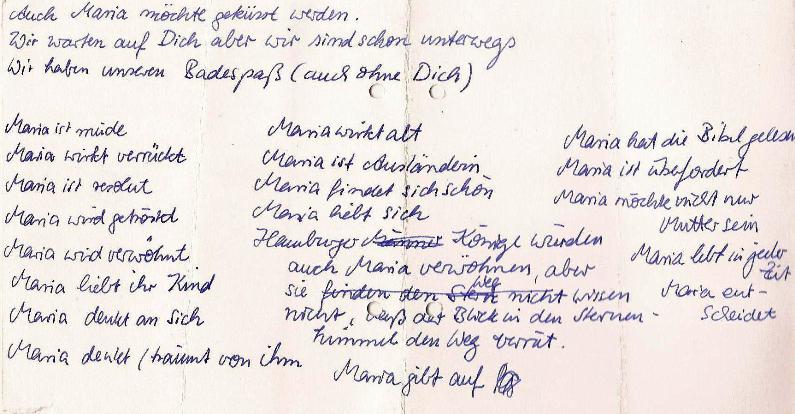 Auch Maria möchte geküsst werden.
Wir warten auf Dich aber wir sind schon unterwegs
Wir haben unseren Badespaß (auch ohne Dich)
Maria ist müde
Maria wirkt verrückt
Maria ist resolut
Maria wird getröstet
Maria wird verwöhnt
Maria liebt ihr Kind
Maria denkt an sich
Maria denkt / träumt von ihm
Maria wirkt alt
Maria ist Ausländerin
Maria findet sich schön
Maria liebt sich
Hamburger Männer Könige würden
auch Maria verwöhnen, aber
Weg
sie finden den Stern nicht wissen
nicht, daß der Blick in den Sternen-
himmel den Weg verrät.
Maria gibt auf
Maria hat die Bibel gelesen
Maria ist überfordert
Maria möchte nicht nur
Mutter sein
Maria lebt in jeder
Zeit
Maria ent-
scheidet